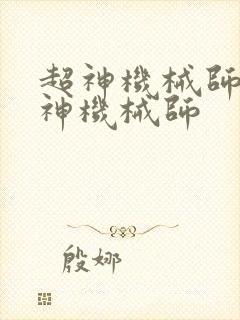 超神機械師
神機械師
殷娜